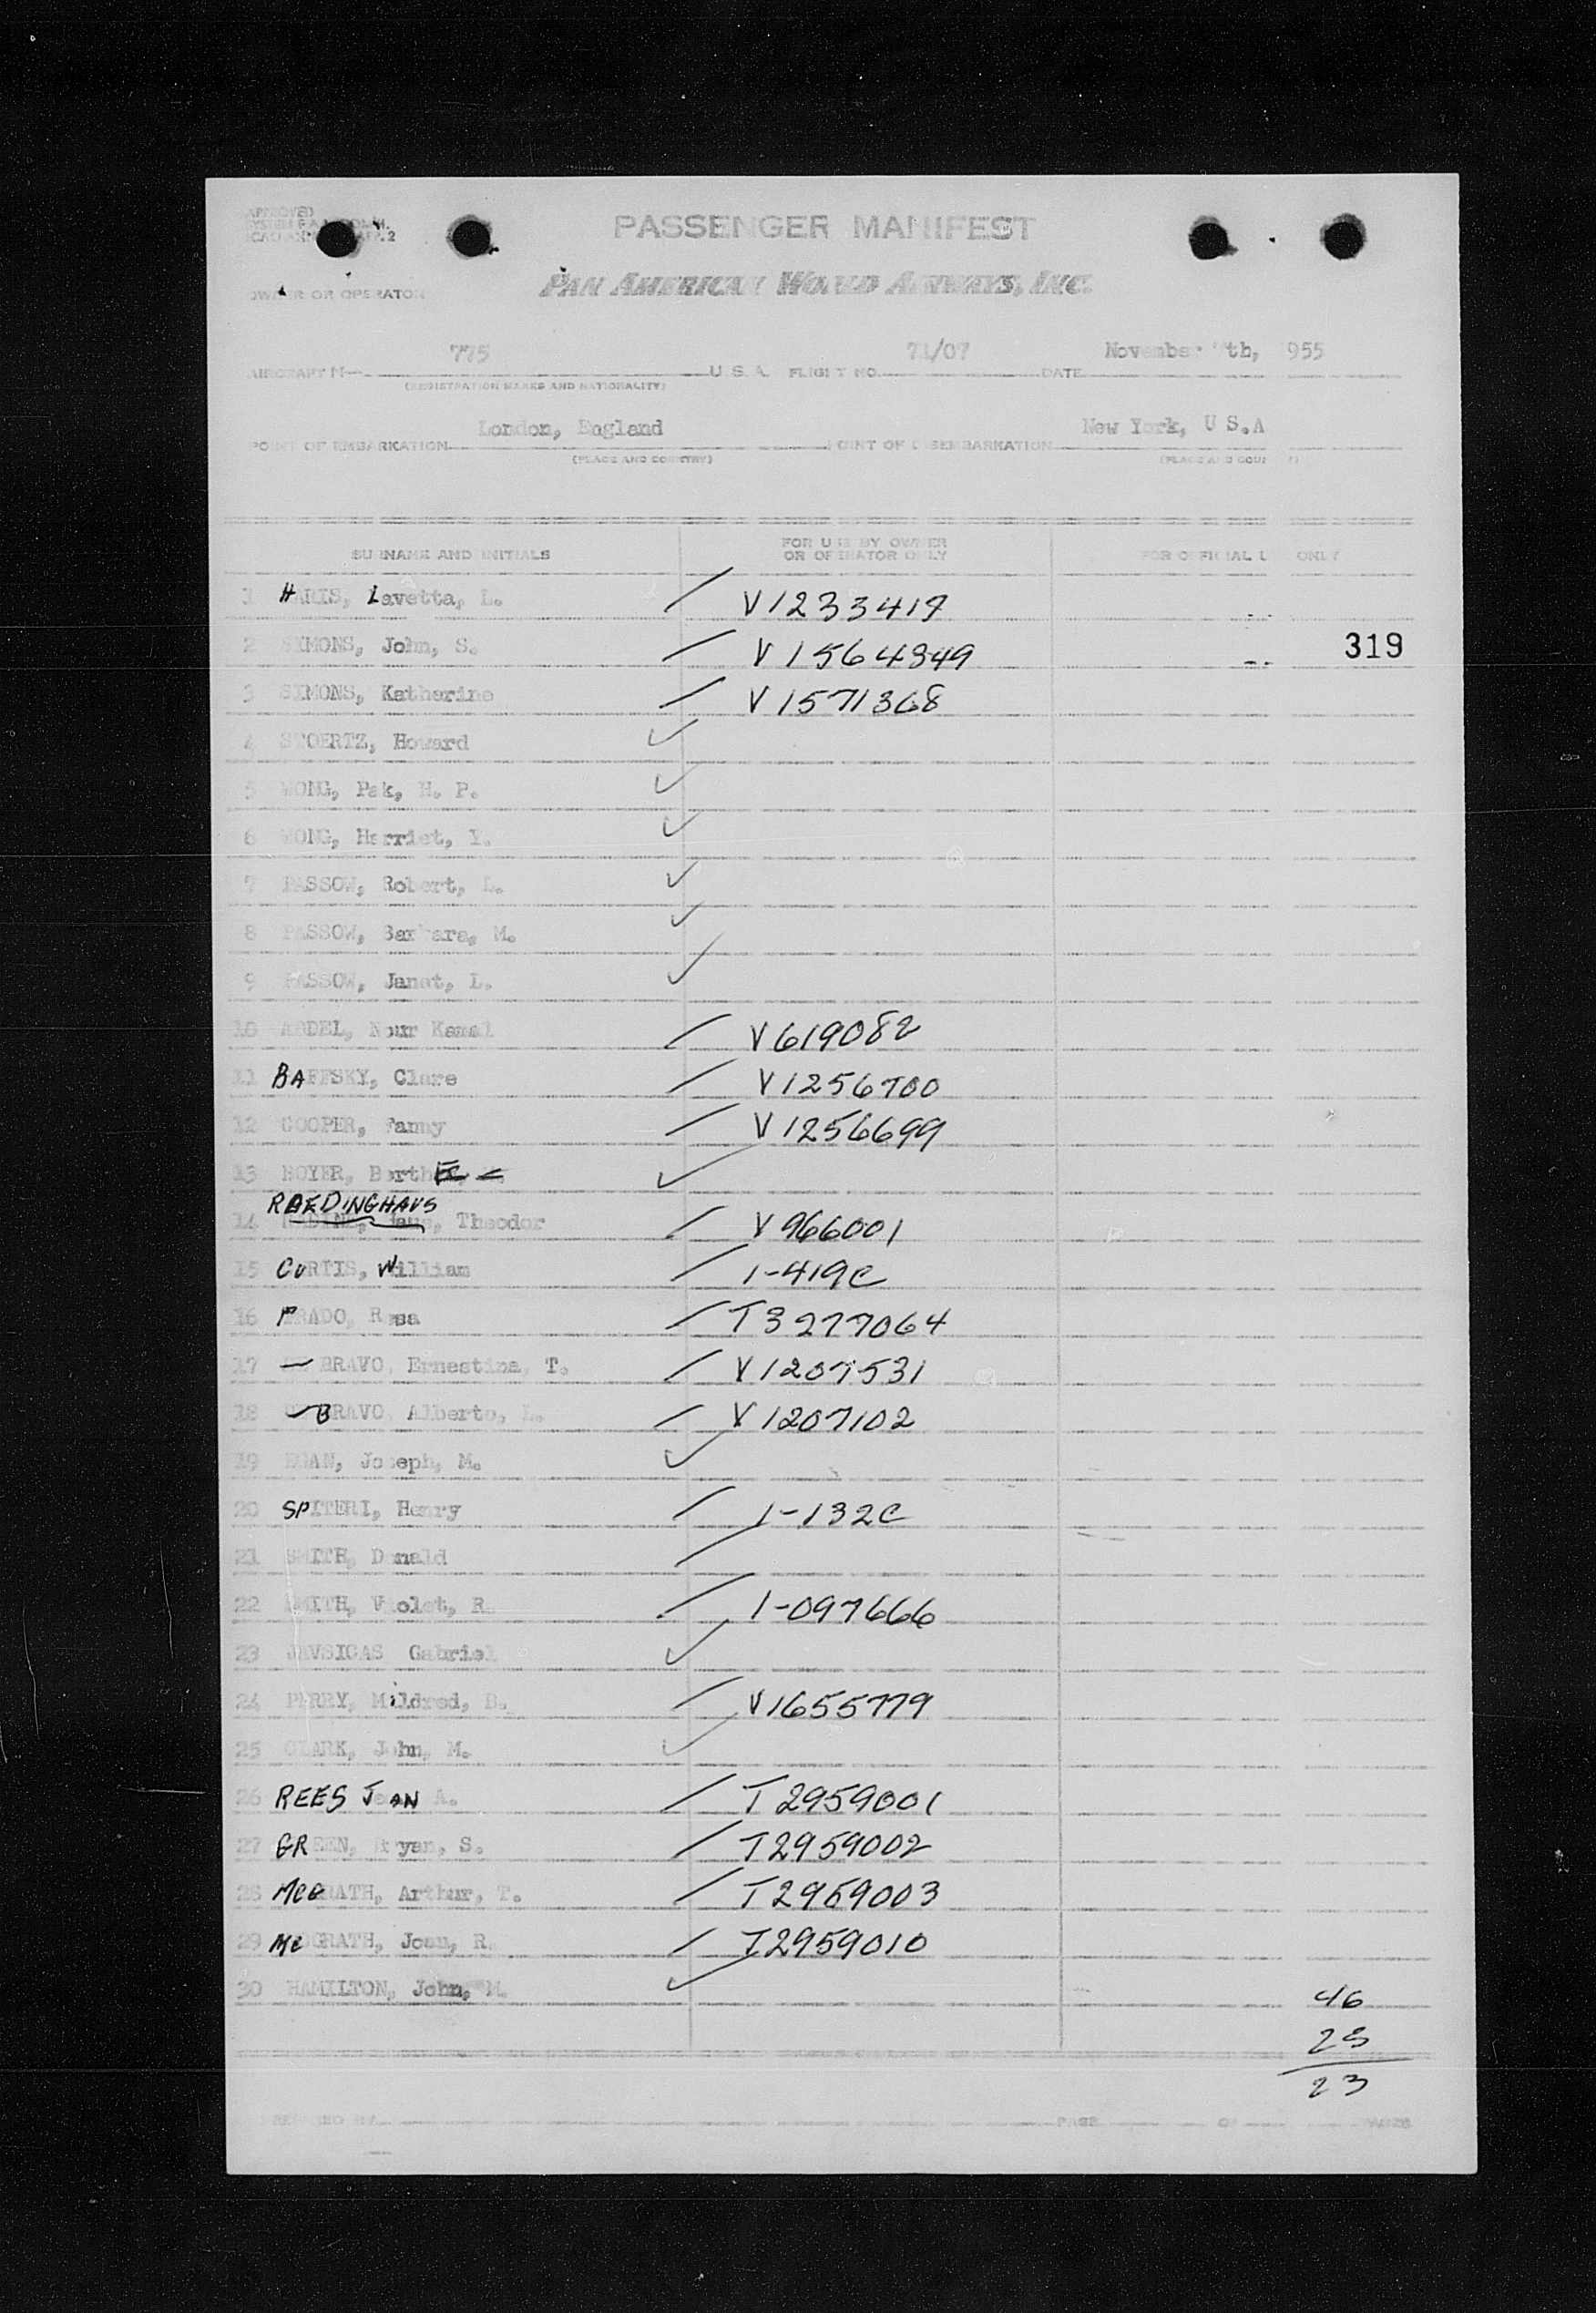 APPROVED
PASSENGER MANIFEST
OWNER OR OPERATOR PAN AMERICAN WORLD AIRWAYS, INC.
775 71/07 November th, 955
AIRCRAFT N— U. S. A. FLIGHT NO. DATE
(REGISTRATION MARKS AND NATIONALITY)
London, England New York, U S.A
POINT OF EMBARKATION POINT OF DISEMBARKATION
(PLACE AND COUNTRY) (PLACE AND COUNTRY)
SURNAME AND INITIALS FOR USE BY OWNER OR OPERATOR ONLY FOR OFFICIAL U ONLY
1 HARIS, Lavetta, L. V1233417
2 SIMONS, John, S. V1564349 319
3 SIMONS, Katherine V1571368
4 STOERTZ, Howard
5 WONG, Pak, H. P.
6 WONG, Harriet, Y.
7 PASSOW, Robert, L.
8 PASSOW, Barbara, M.
9 PASSOW, Janet, L.
10 ABDEL, Nour Kamal V619082
11 BAFFSKY, Clare V1256700
12 COOPER, Fanny V1256699
13 BOYER, Berthe
ROEDINGHAUS
14 Theodor V966001
15 CURTIS, William 1-419C
16 PRADO, Rosa T3277064
17 BRAVO, Ernestina, T. V1207531
18 BRAVO, Alberto, L. V1207102
19 EGAN, Joseph, M.
20 SPITERI, Henry 1-132C
21 SMITH, Donald
22 SMITH, Violet, R. 1-097666
23 JAVSICAS Gabriel
24 PERRY, Mildred, B. V1655779
25 CLARK, John, M.
26 REES JOAN A. T2959001
27 GREEN, Bryan, S. T2959002
28 McGRATH, Arthur, T. T2959003
29 McGRATH, Joan, R. T2959010
30 HAMILTON, John, M.
46
23
23
PREPARED BY PAGE OF PAGES